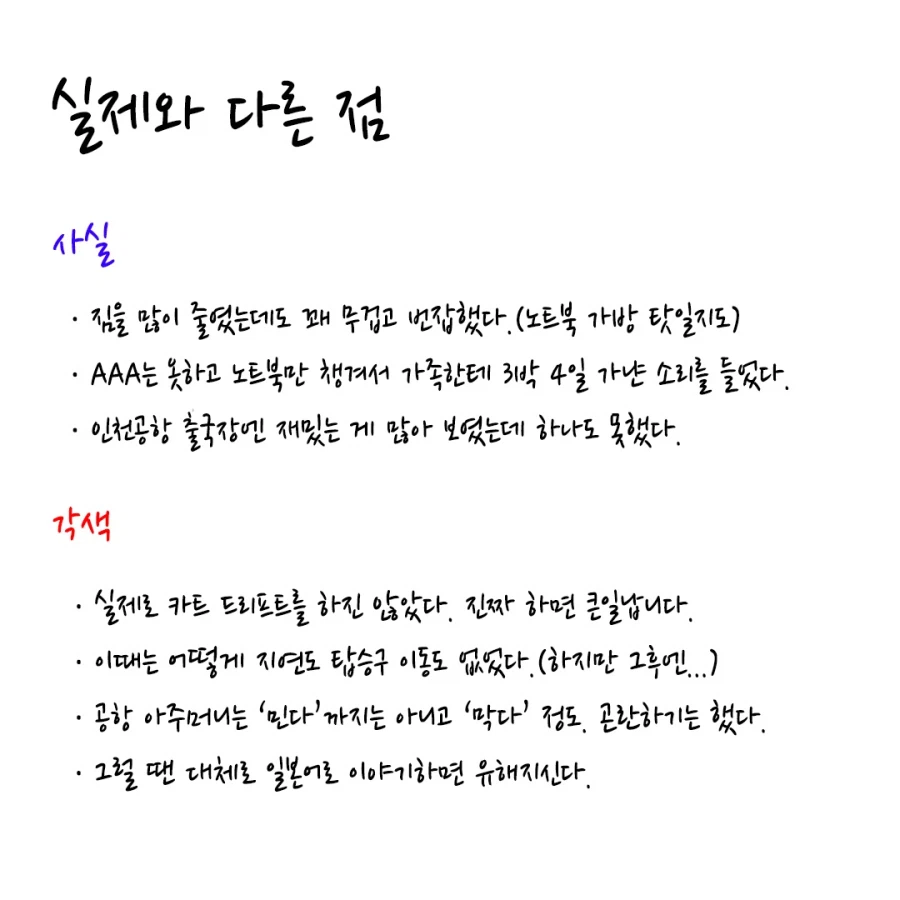 실제와 다른 점
사실
· 짐을 많이 줄였는데도 꽤 무겁고 번잡했다.(노트북 가방 탓일지도)
· AAA는 못하고 노트북만 챙겨서 가족한테 3박 4일 가냔 소리를 들었다.
· 인천공항 출국장엔 재밌는 게 많아 보였는데 하나도 못했다.
각색
· 실제로 카트 드리프트를 하진 않았다. 진짜 하면 큰일납니다.
· 이때는 어떻게 지연도 탑승구 이동도 없었다.(하지만 그후엔...)
· 공항 아주머니는 '민다'까지는 아니고 '막다' 정도. 곤란하기는 했다.
· 그럴 땐 대체로 일본어로 이야기하면 유해지신다.